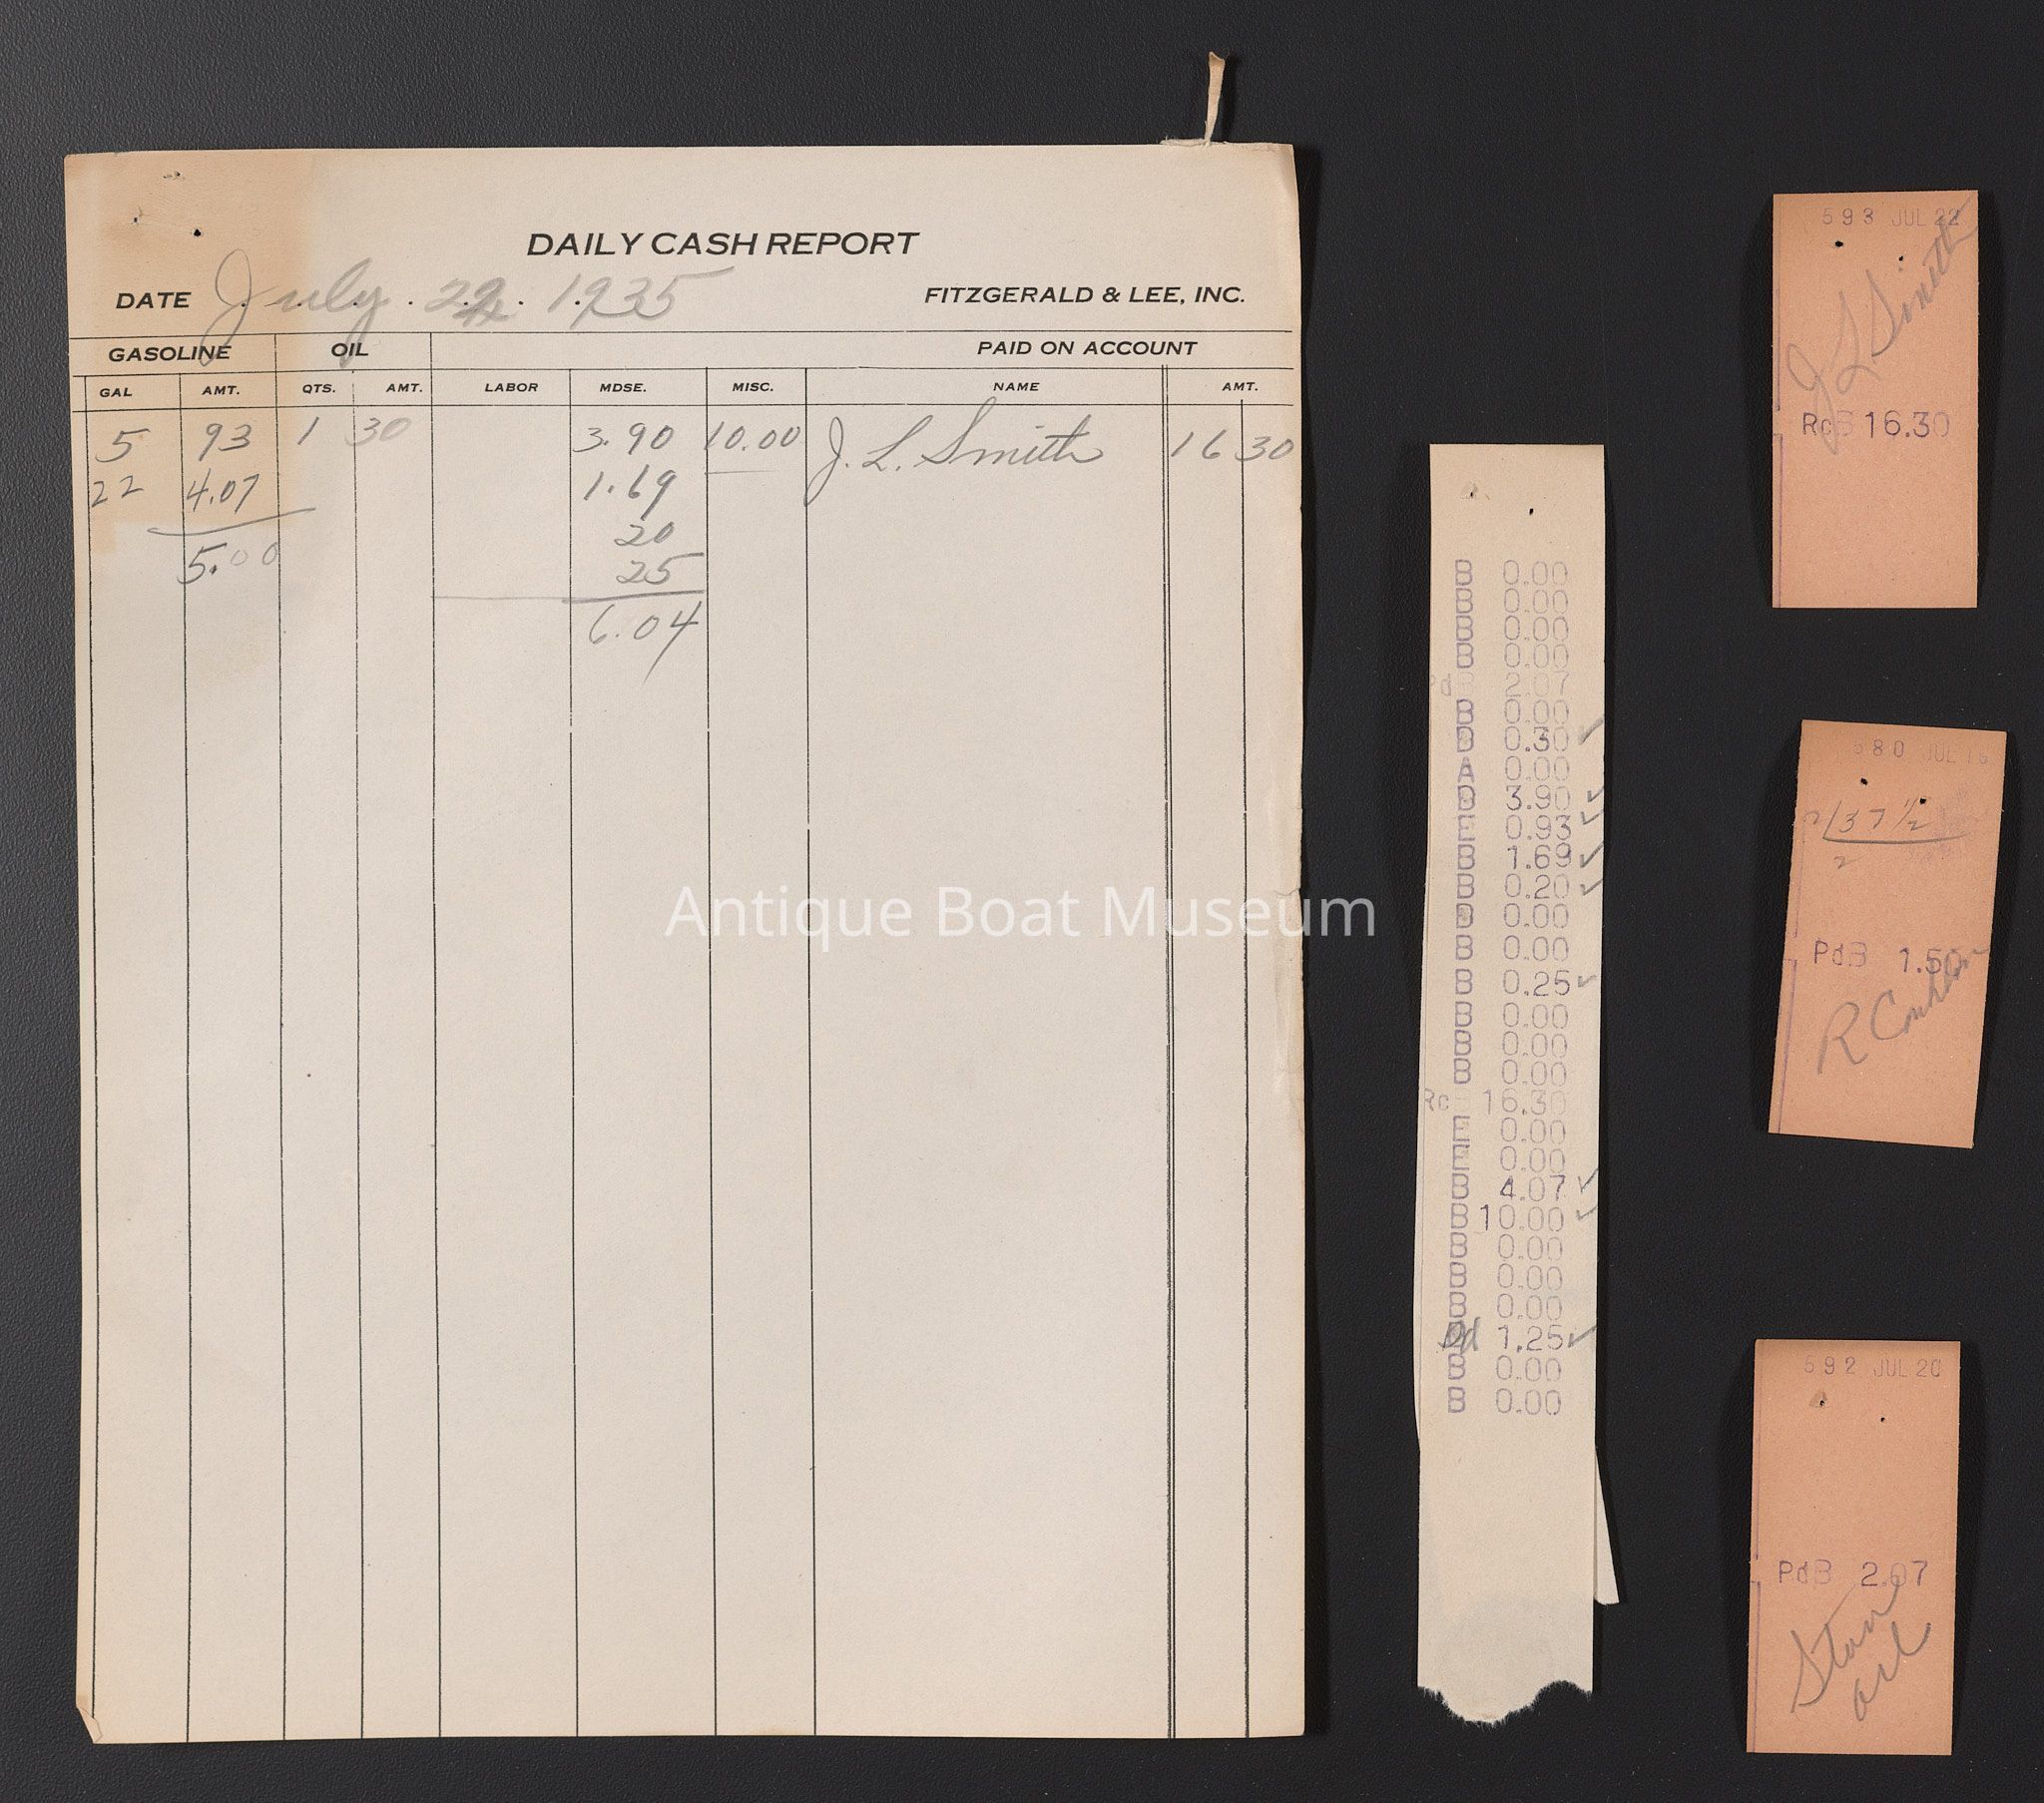 DAILY CASH REPORT
DATE July 22. 1935 FITZGERALD & LEE, INC.
GASOLINE OIL PAID ON ACCOUNT
GAL AMT. QTS. AMT. LABOR MDSE. MISC. NAME AMT.
5 93 1 30 3.90 10.00 J. L. Smith 16 30
22 4.07 1.69
20
5.00 25
6.04
Antique Boat Museum
B 0.00
B 0.00
B 0.00
B 0.00
Pd 2.07
B 0.00
0.30 ✓
A 0.00
3.90 ✓
E 0.93 ✓
B 1.69 ✓
B 0.20 ✓
0.00
B 0.00
B 0.25 ✓
B 0.00
B 0.00
B 0.00
Rc 16.30
E 0.00
E 0.00
B 4.07 ✓
B 10.00 ✓
B 0.00
B 0.00
B 0.00
Pd 1.25 ✓
B 0.00
B 0.00
593 JUL 22
J L Smith
RcB 16.30
580 JUL 16
37 1/2
2
PdB 1.50
R
592 JUL 20
PdB 2.07